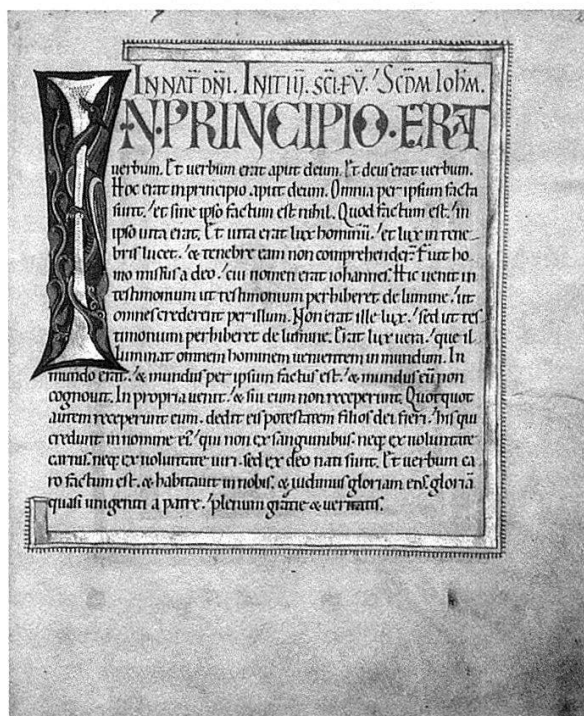 IN NAT̄ DN̄I. INITIŪ. SC̄I. EV̄. SC̄DM IOH̄M.
IN·PRINCIPIO·ERAT
uerbum. Et uerbum erat aput deum. Et deus erat uerbum.
Hoc erat in principio aput deum. Omnia per ipsum facta
sunt. et sine ipso factum est nihil. Quod factum est. in
ipso uita erat. Et uita erat lux hominū. et lux in tene-
bris lucet. & tenebre eam non comprehender̄. Fuit ho
mo missus a deo. cui nomen erat iohannes. Hic uenit in
testimonium ut testimonium perhiberet de lumine. ut
omnes crederent per illum. Non erat ille lux. sed ut tes-
timonium perhiberet de lumine. Erat lux uera. que il
luminat omnem hominem uenientem in mundum. In
mundo erat. & mundus per ipsum factus est. & mundus eū non
cognouit. In propria uenit. & sui eum non receperunt. Quotquot
autem receperunt eum. dedit eis potestatem filios dei fieri. his qui
credunt in nomine ei᾽. qui non ex sanguinibus. neq; ex uoluntate
carnis. neq; ex uoluntate uiri. sed ex deo nati sunt. Et uerbum ca
ro factum est. & habitauit in nobis. & uidimus gloriam eius. gloriā
quasi unigeniti a patre. plenum gratie & ueritatis.